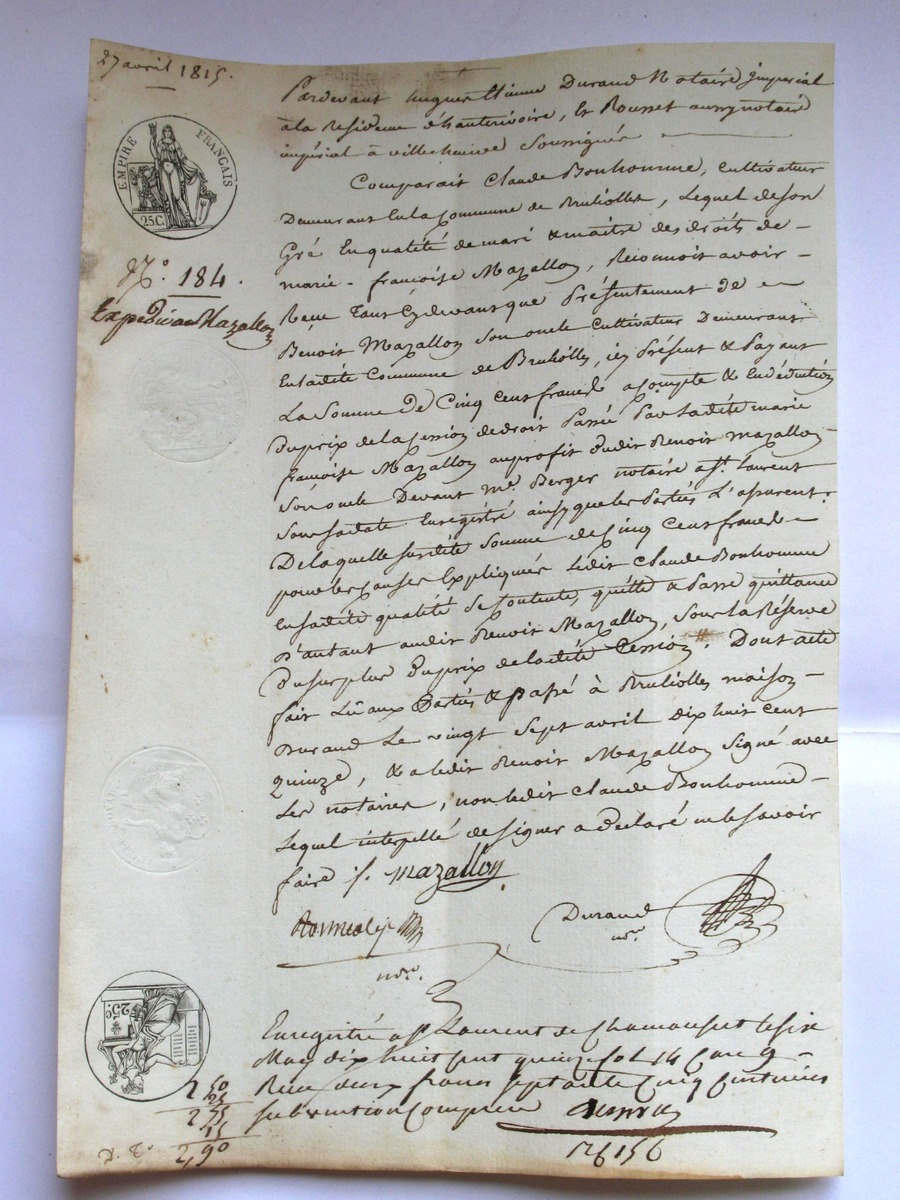 27 avril 1815.
EMPIRE FRANÇAIS
25C.
N.° 184.
Expédié au Mazallon
Pardevant Etienne Durand Notaire Imperial
à la Residence d'hauterivoire, & Rousset aussy notaire
impérial à villechenève Soussignés
Comparait Claude Bonhomme, Cultivateur
Demeurant En la Commune de Brulioles, Lequel de son
Gré En qualité de mari & maitre des droits de
marie - françoise Mazallon, Reconnoit avoir
Recu Tant Cydevant que Présentement de
Bénoit Mazallon Son oncle Cultivateur Demeurant
En ladite Commune de Brulioles, icy Présent & Payant
La Somme De Cinq Cent francs acompte & En déduction
Du prix de la Cession de droit Passé Par Ladite marie
françoise Mazallon au profit dudit Benoit mazallon
Son oncle Devant m.e Berger notaire a S.t Laurent
Sous sa date Enregistré ainsy que les Parties L'assurent.
De laquelle susdite Somme de Cinq Cent francs
pour les causes Expliquées Ledit Claude Bonhomme
En sadite qualité Se Contente, quitte & Passe quittance
D'autant audit Benoit Mazallon, Sous La Réserve
Du surplus Du prix de ladite Cession. Dont acte
fait Lû aux Parties & passé à Brulioles maison
Durand Le vingt Sept avril Dix huit cent
quinze, & a ledit Benoit Mazallon Signé avec
Les notaires, non ledit Claude Bonhomme
Lequel interpellé de signer a déclaré ne le savoir
faire /. Mazallon
Durand
n.re
n.re
Enregistré a S.t Laurent de Chamousset le six
May dix huit cent quinze fol 14 Case 9
Recu deux francs soixante quinze Centimes
subvention Comprise
25C.
2,50
25
2,75
15
2,90